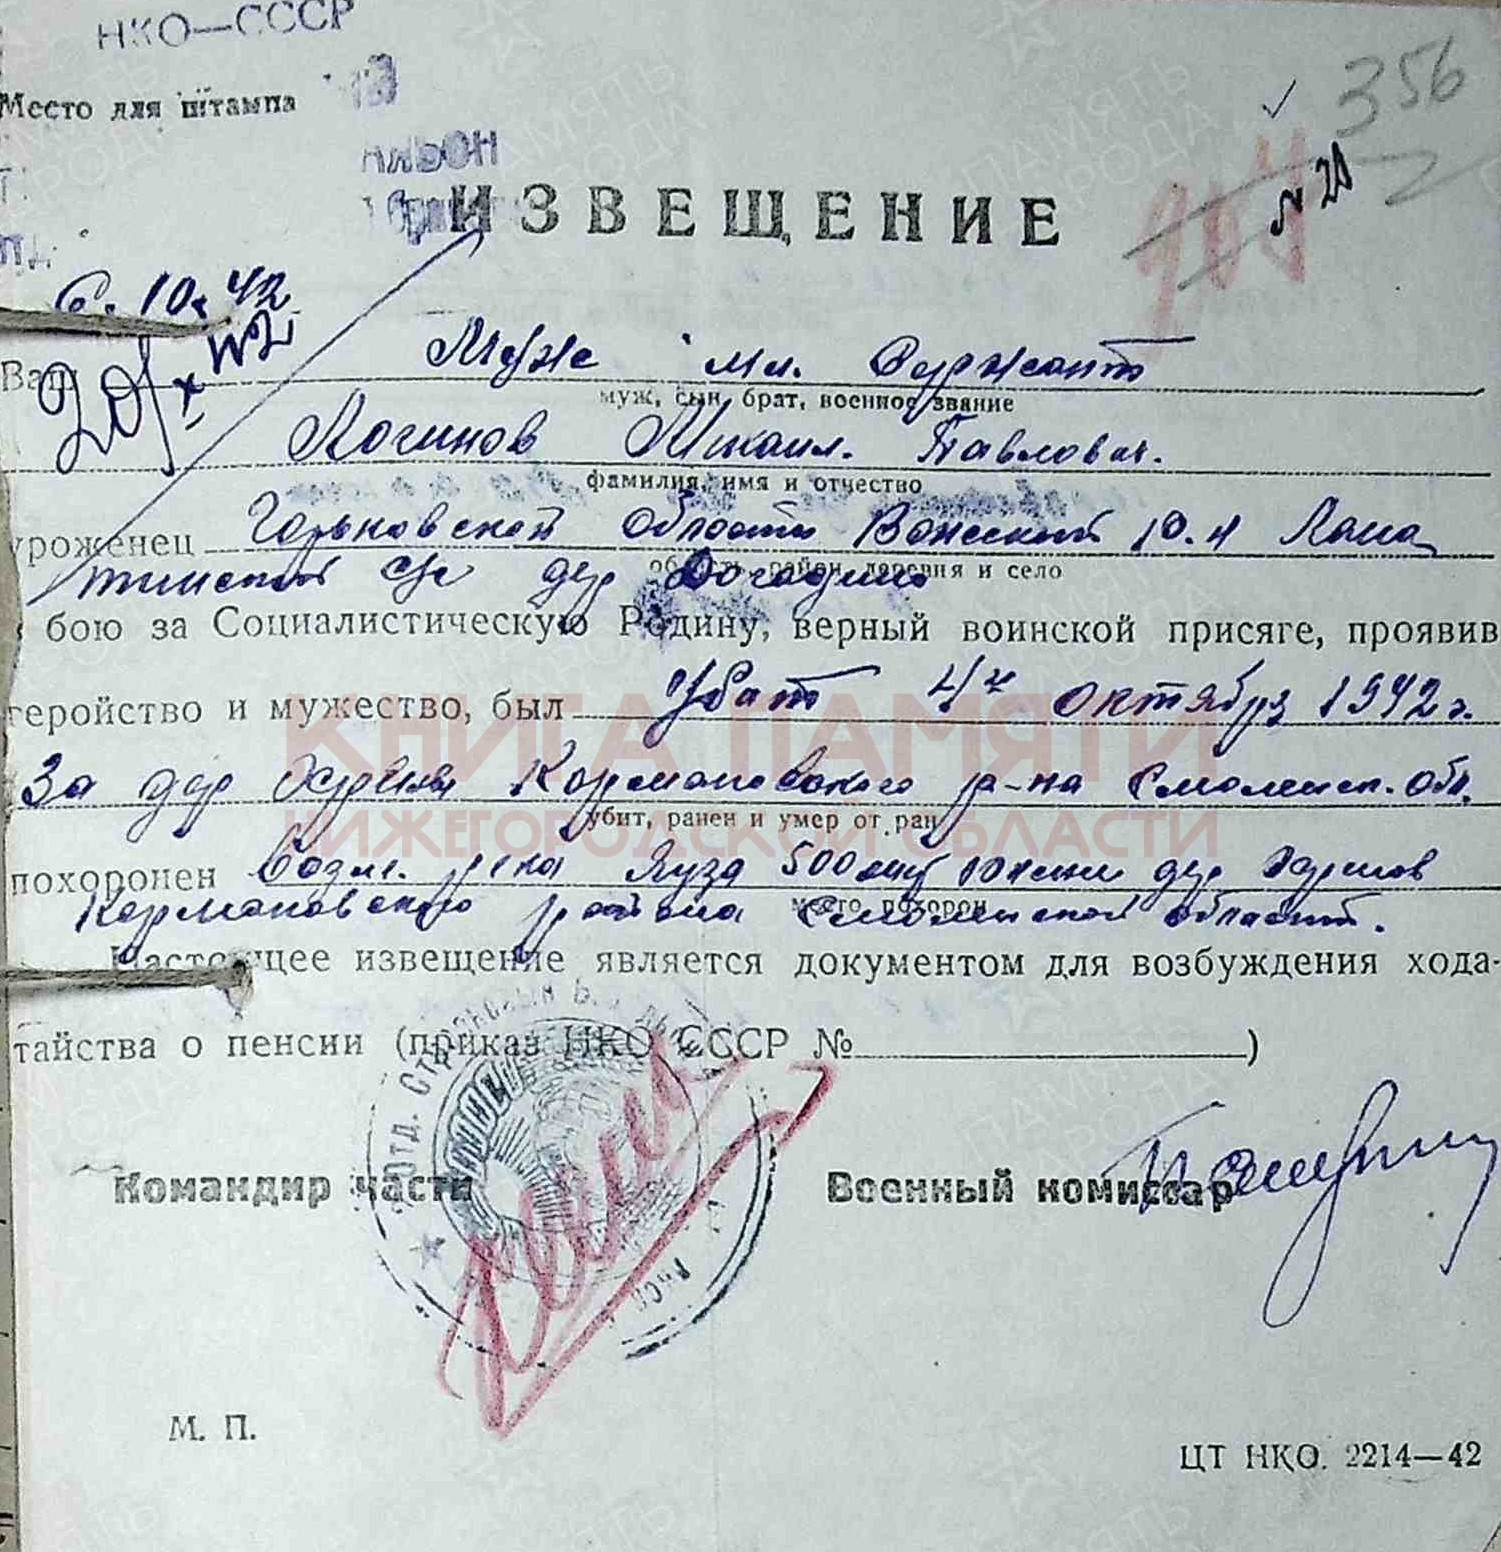 НКО—СССР
Место для штампа
356
204
N 20
ИЗВЕЩЕНИЕ
6.10.42
Ваш Муж мл. Сержант
муж, сын, брат, военное звание
Логинов Михаил. Павлович.
фамилия, имя и отчество
уроженец Горьковской области
область, район, деревня и село
бою за Социалистическую Родину, верный воинской присяге, проявив
геройство и мужество, был Убит 4го октября 1942г.
КНИГА ПАМЯТИ
За дер Кармановского р-на Смоленск. обл.
убит, ранен и умер от ран
НИЖЕГОРОДСКОЙ ОБЛАСТИ
похоронен река Яуза 500 дер
место похорон
Кармановского района Смоленской области.
Настоящее извещение является документом для возбуждения хода-
тайства о пенсии (приказ НКО СССР №)
Командир части
Военный комиссар
М. П.
ЦТ НКО. 2214—42